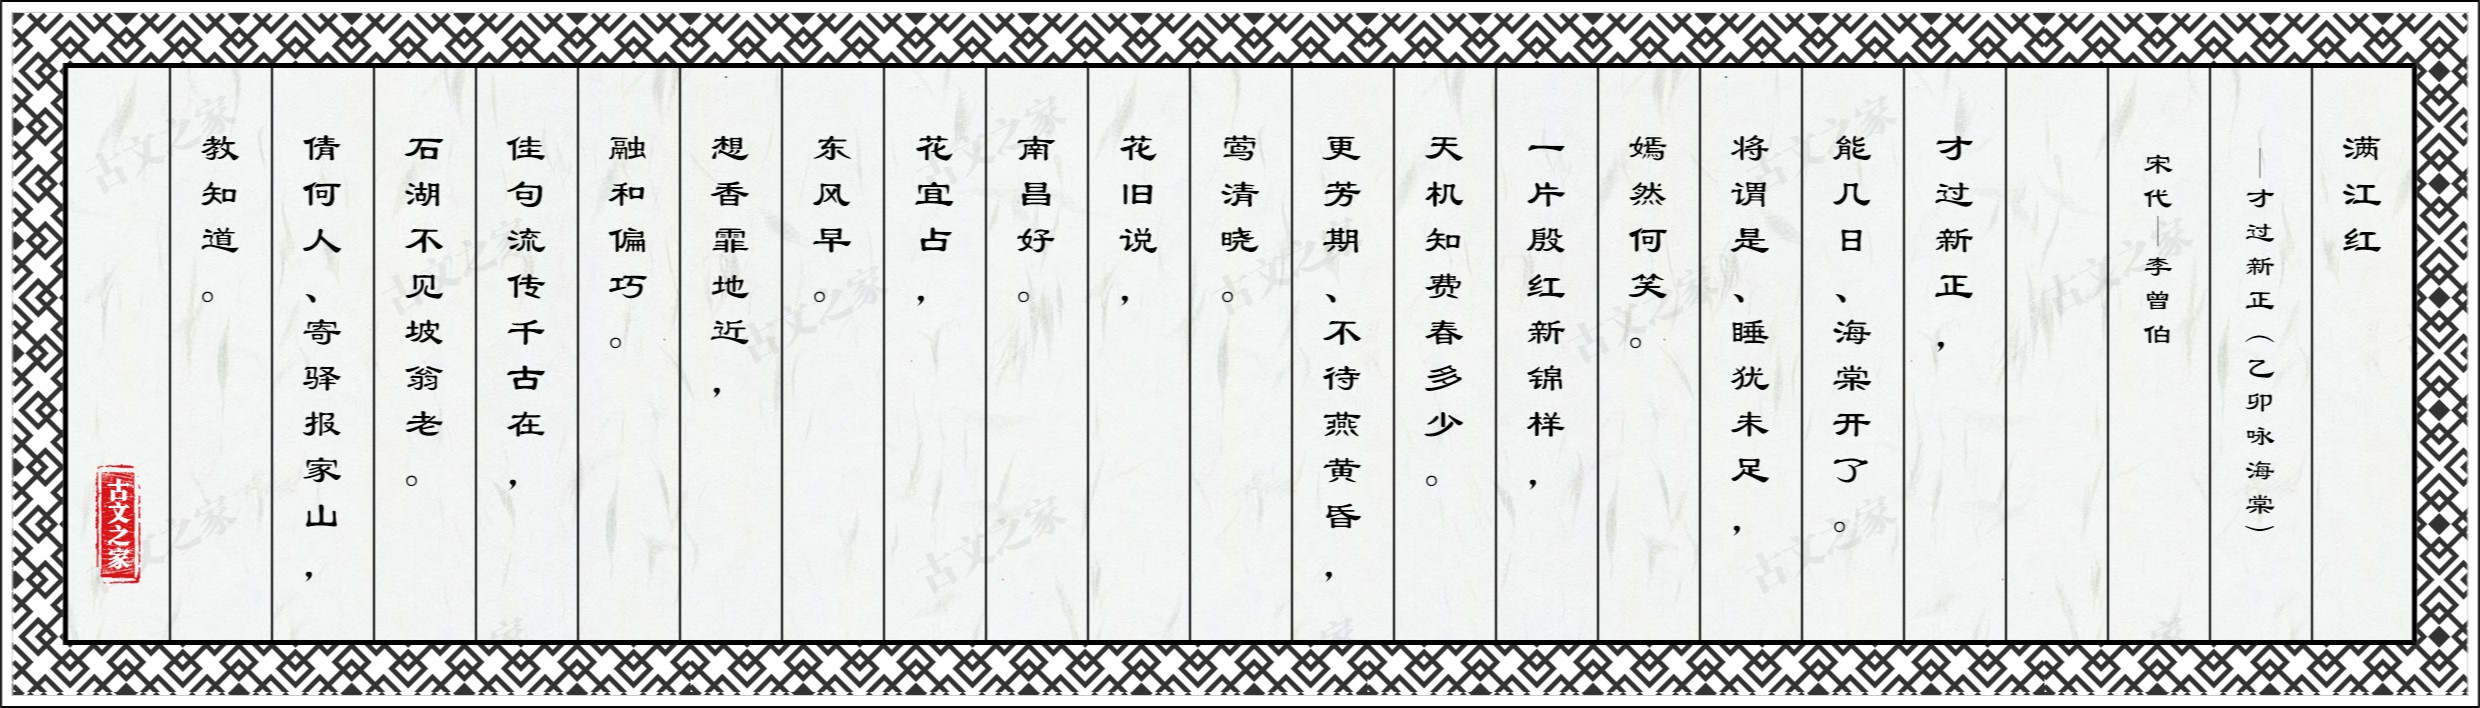 满江红
——才过新正（乙卯咏海棠）
宋代—李曾伯
才过新正，
能几日、海棠开了。
将谓是、睡犹未足，
嫣然何笑。
一片殷红新锦样，
天机知费春多少。
更芳期、不待燕黄昏，
莺清晓。
花旧说，
南昌好。
花宜占，
东风早。
想香霏地近，
融和偏巧。
佳句流传千古在，
石湖不见坡翁老。
倩何人、寄驿报家山，
教知道。
古文之家